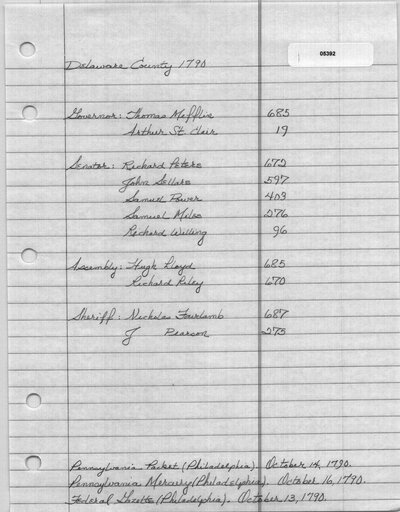 05392
Delaware County 1790
Governor: Thomas Mifflin 685
Arthur St. Clair 19
Senator: Richard Peters 673
John Sellars 597
Samuel Power 403
Samuel Miles 276
Richard Willing 96
Assembly: Hugh Lloyd 685
Richard Riley 670
Sheriff: Nicholas Fairlamb 687
J Pearson 273
Pennsylvania Packet (Philadelphia). October 14, 1790.
Pennsylvania Mercury (Philadelphia). October 16, 1790.
Federal Gazette (Philadelphia). October 13, 1790.